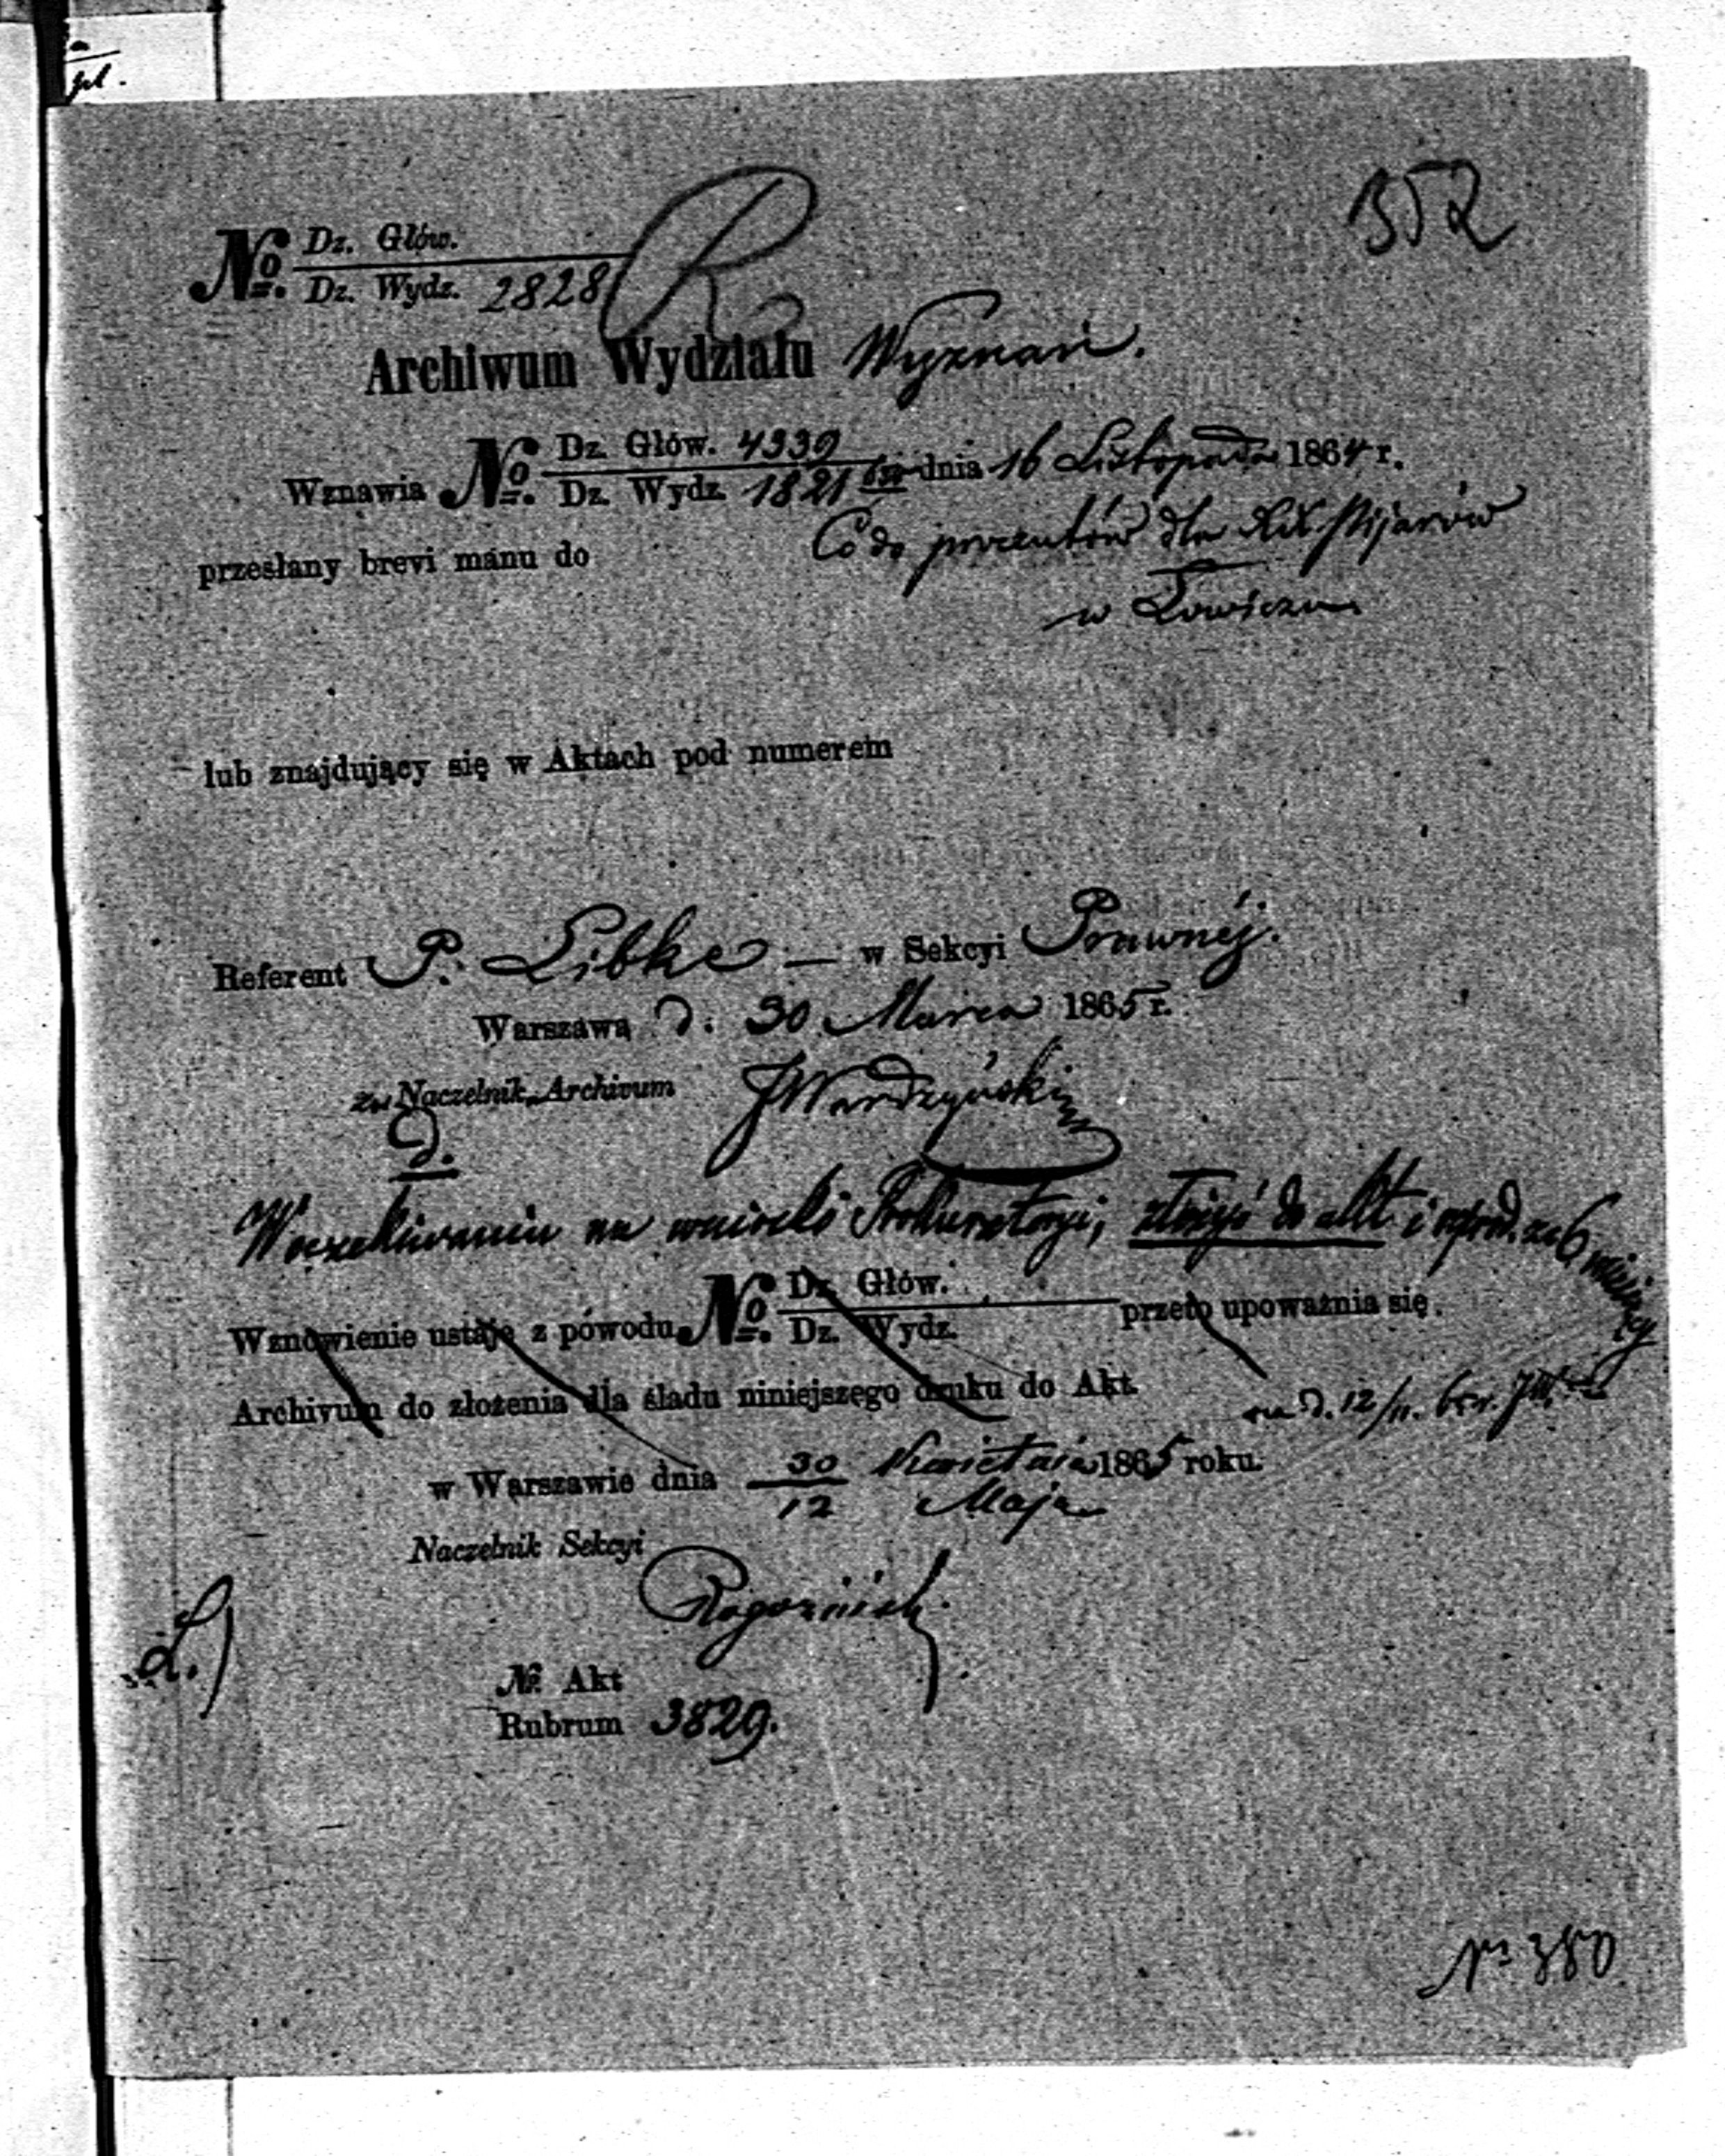 352
№ Dz. Głów.
Dz. Wydz. 2828
R
Archiwum Wydziału Wyznań.
Wznawia № Dz. Głów. 4339
Dz. Wydz. 1821 dnia 16 Listopada 1864 r.
przesłany brevi manu do Co do procentów dla XX Pijarów
w Łowiczu
lub znajdujący się w Aktach pod numerem
Referent P. Libke — w Sekcyi Prawnéj.
Warszawa d. 30 Marca 1865 r.
za Naczelnik Archivum JWardzyński
D.
W oczekiwaniu na wnioski Prokuratoryi, złożyć do akt i za 6 miesięcy
Wznowienie ustaje z powodu № Dz. Głów.
Dz. Wydz. przeto upoważnia się
Archivum do złożenia dla śladu niniejszego druku do Akt.
na d. 12/11.
w Warszawie dnia 30 Kwietnia 1865 roku.
12 Maja
Naczelnik Sekcyi
L.
№ Akt
Rubrum 3829.
№ 380